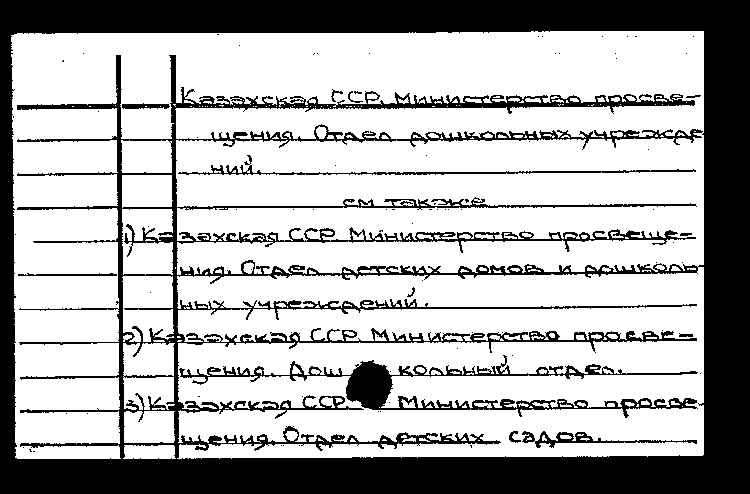 Казахская ССР. Министерство просве-
щения. Отдел дошкольных учрежде
ний.
см также
1) Казахская ССР Министерство просвеще-
ния. Отдел детских домов и дошколь-
ных учреждений.
2) Казахская ССР. Министерство просве-
щения. Дошкольный отдел.
3) Казахская ССР. Министерство просве-
щения. Отдел детских садов.